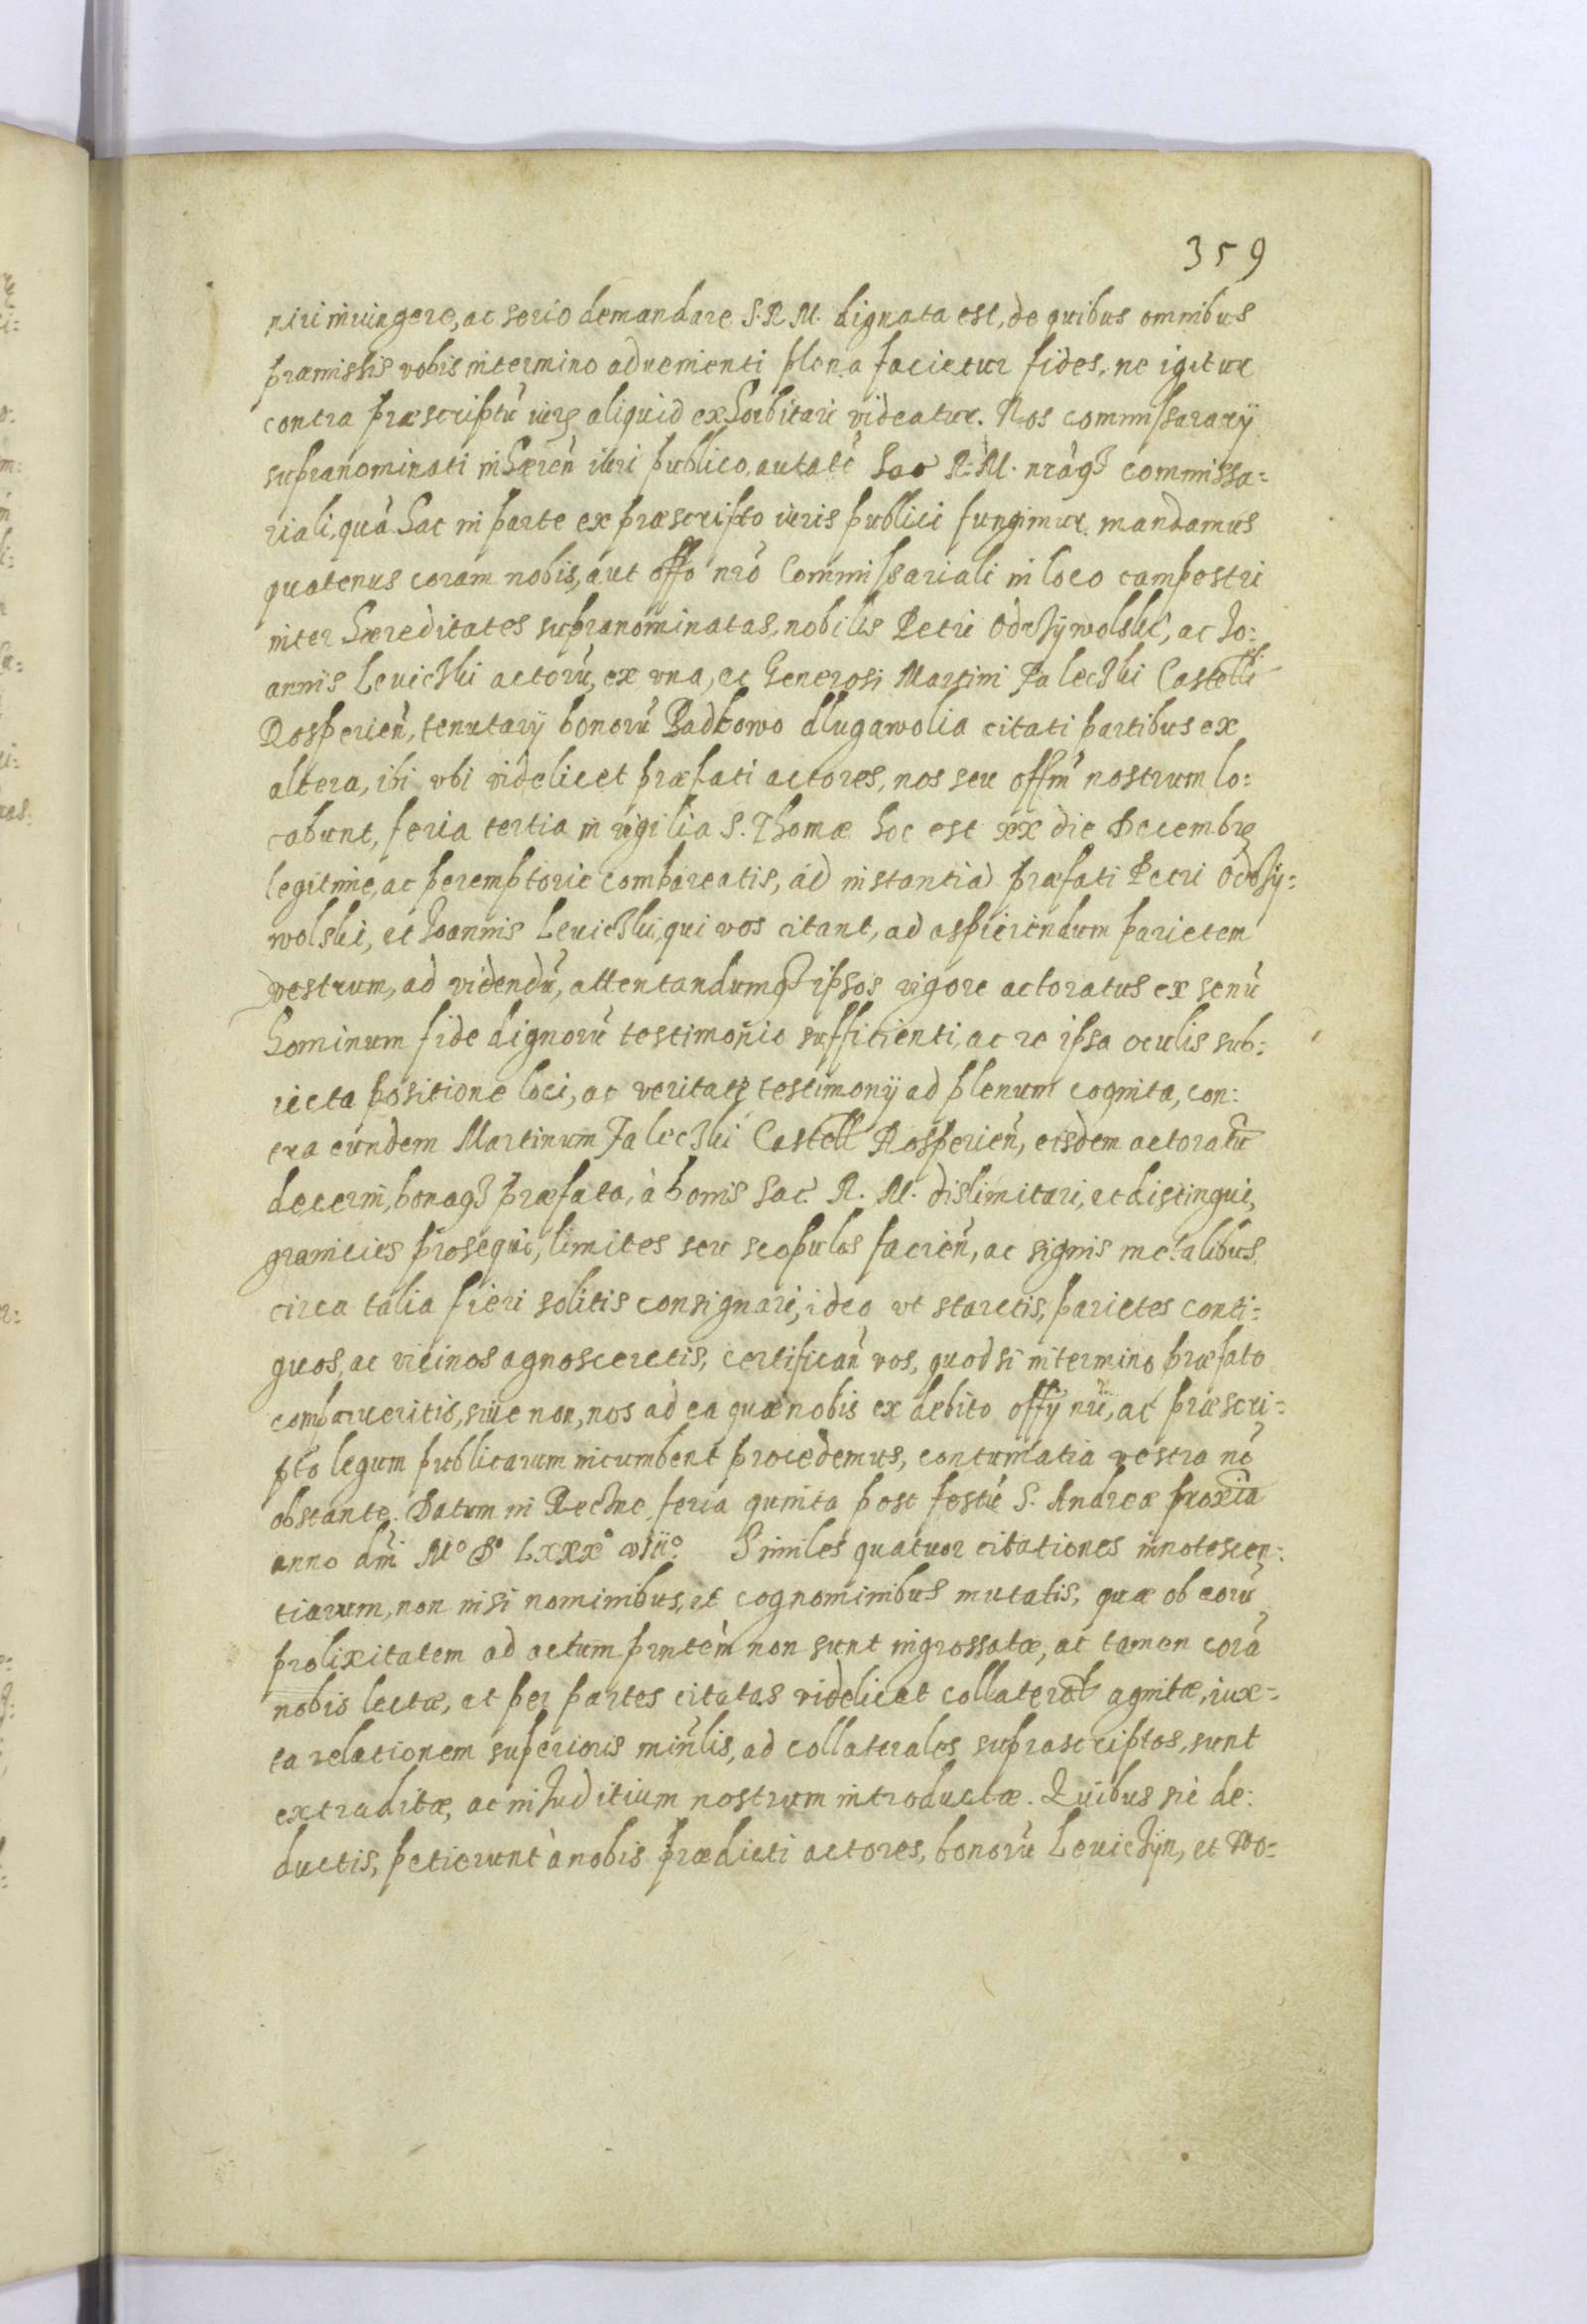 359
niri iniungere, ac serio demandare S. R. M. dignata est, de quibus omnibus
præmissis vobis in termino aduenienti plena facietur fides, ne igitur
contra præscriptũ iuris aliquid exhorbitari videatur. Nos commissarary
supranominati inhæreñ iuri publico, autatẽ Sac R. M. nrãq3 commissa=
riali, quà hac in parte ex præscripto iuris publici fungimur mandamus
quatenus coram nobis, aut offo nrõ Commissariali in loco campestri
inter hæreditates supranominatas, nobilis Petri Odrzywolski, ac Jo:
annis Leuiczki actorũ, ex vna, ac Generosi Martini Faleczki Castelli
Rosperień, tenutary bonorũ Badkowo dlugawolia citati partibus ex
altera, ibi vbi videlicet præfati actores, nos seu offm̃ nostrum lo:
cabunt, feria tertia in vigilia S. Thomæ hoc est xx die Decembris
legitime, ac peremptorie compareatis, ad instantiã præfati Petri Odrzy=
wolski, et Joannis Leuiczki, qui vos citant, ad aspiciendum parietem
vestrum, ad videndũ, attentandumq3 ipsos vigore actoratus ex senũ
hominum fide dignorũ testimonio sufficienti, ac re ipsa oculis sub:
iecta positione loci, ac veritate testimonij ad plenum cognita, con:
tra eundem Martinum Faleczki Castell Rosperień, eisdem actoratũ
decerni, bonaq3 præfata, à bonis Sac. R. M. dislimitari, et distingui,
granicies prosequi, limites seu scopulos facień, ac signis metalibus
circa talia fieri solitis consignari, ideo vt staretis, parietes conti=
guos, ac vicinos agnosceretis, certificań vos, quod si in termino præfato
comparueritis, siue non, nos ad ea quæ nobis ex debito offy nri, ac præscri=
pto legum publicarum incumbent procedemus, contumatia vestra nõ
obstante. Datum in Rechne feria quinta post festũ S. Andreæ proxia
anno dm̃i Mº Dº Lxxxº viiiº. Similes quatuor citationes innotescen:
tiarum, non nisi nominibus, et cognominibus mutatis, quæ ob eorũ
prolixitatem ad actum pñtem non sunt ingrossatæ, at tamen corã
nobis lectæ, et per partes citatas videlicet collateral agnitæ, iux=
ta relationem superioris miñlis, ad collaterales suprascriptos, sunt
extraditæ, ac in Juditium nostrum introductæ. Quibus sic de:
ductis, petierunt à nobis prædicti actores, bonorũ Leuiczyn, et Wo=